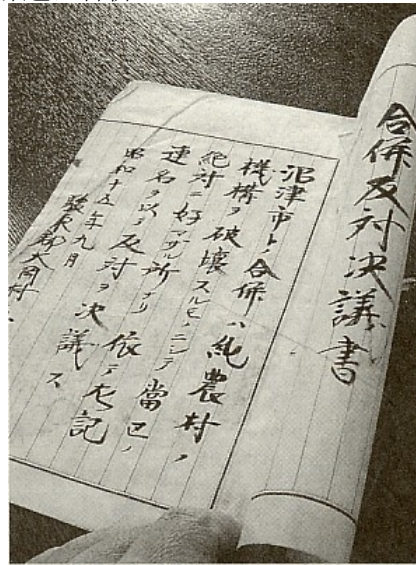 合併反対決議書
沼津市ト合併ハ純農村ノ
機構ヲ破壊スルモノニシテ
絶対ニ好マザル所ナリ 依テ左記
連名ヲ以テ反対ヲ決議ス
昭和十五年九月
駿東郡大岡村